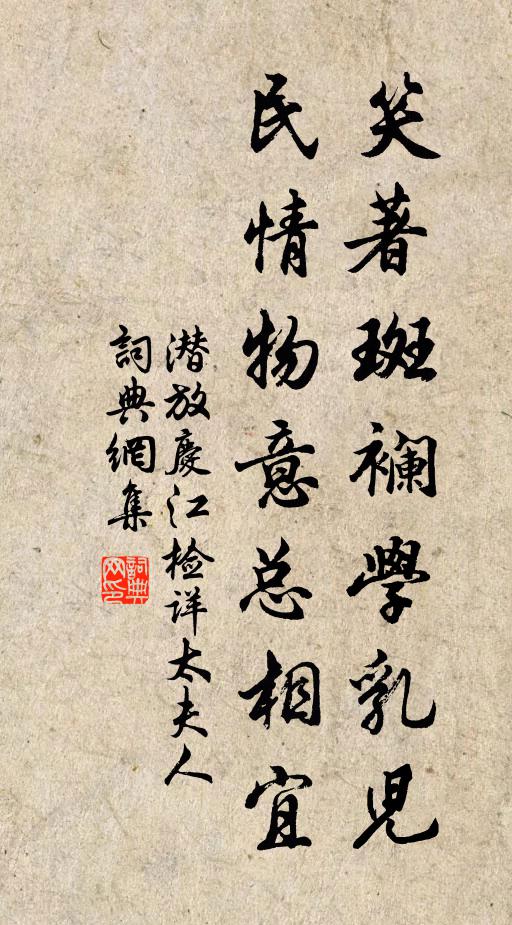 笑著斑斕學乳兒
民情物意总相宜
潜放慶江檢详太夫人
詞典網集
詞典网印